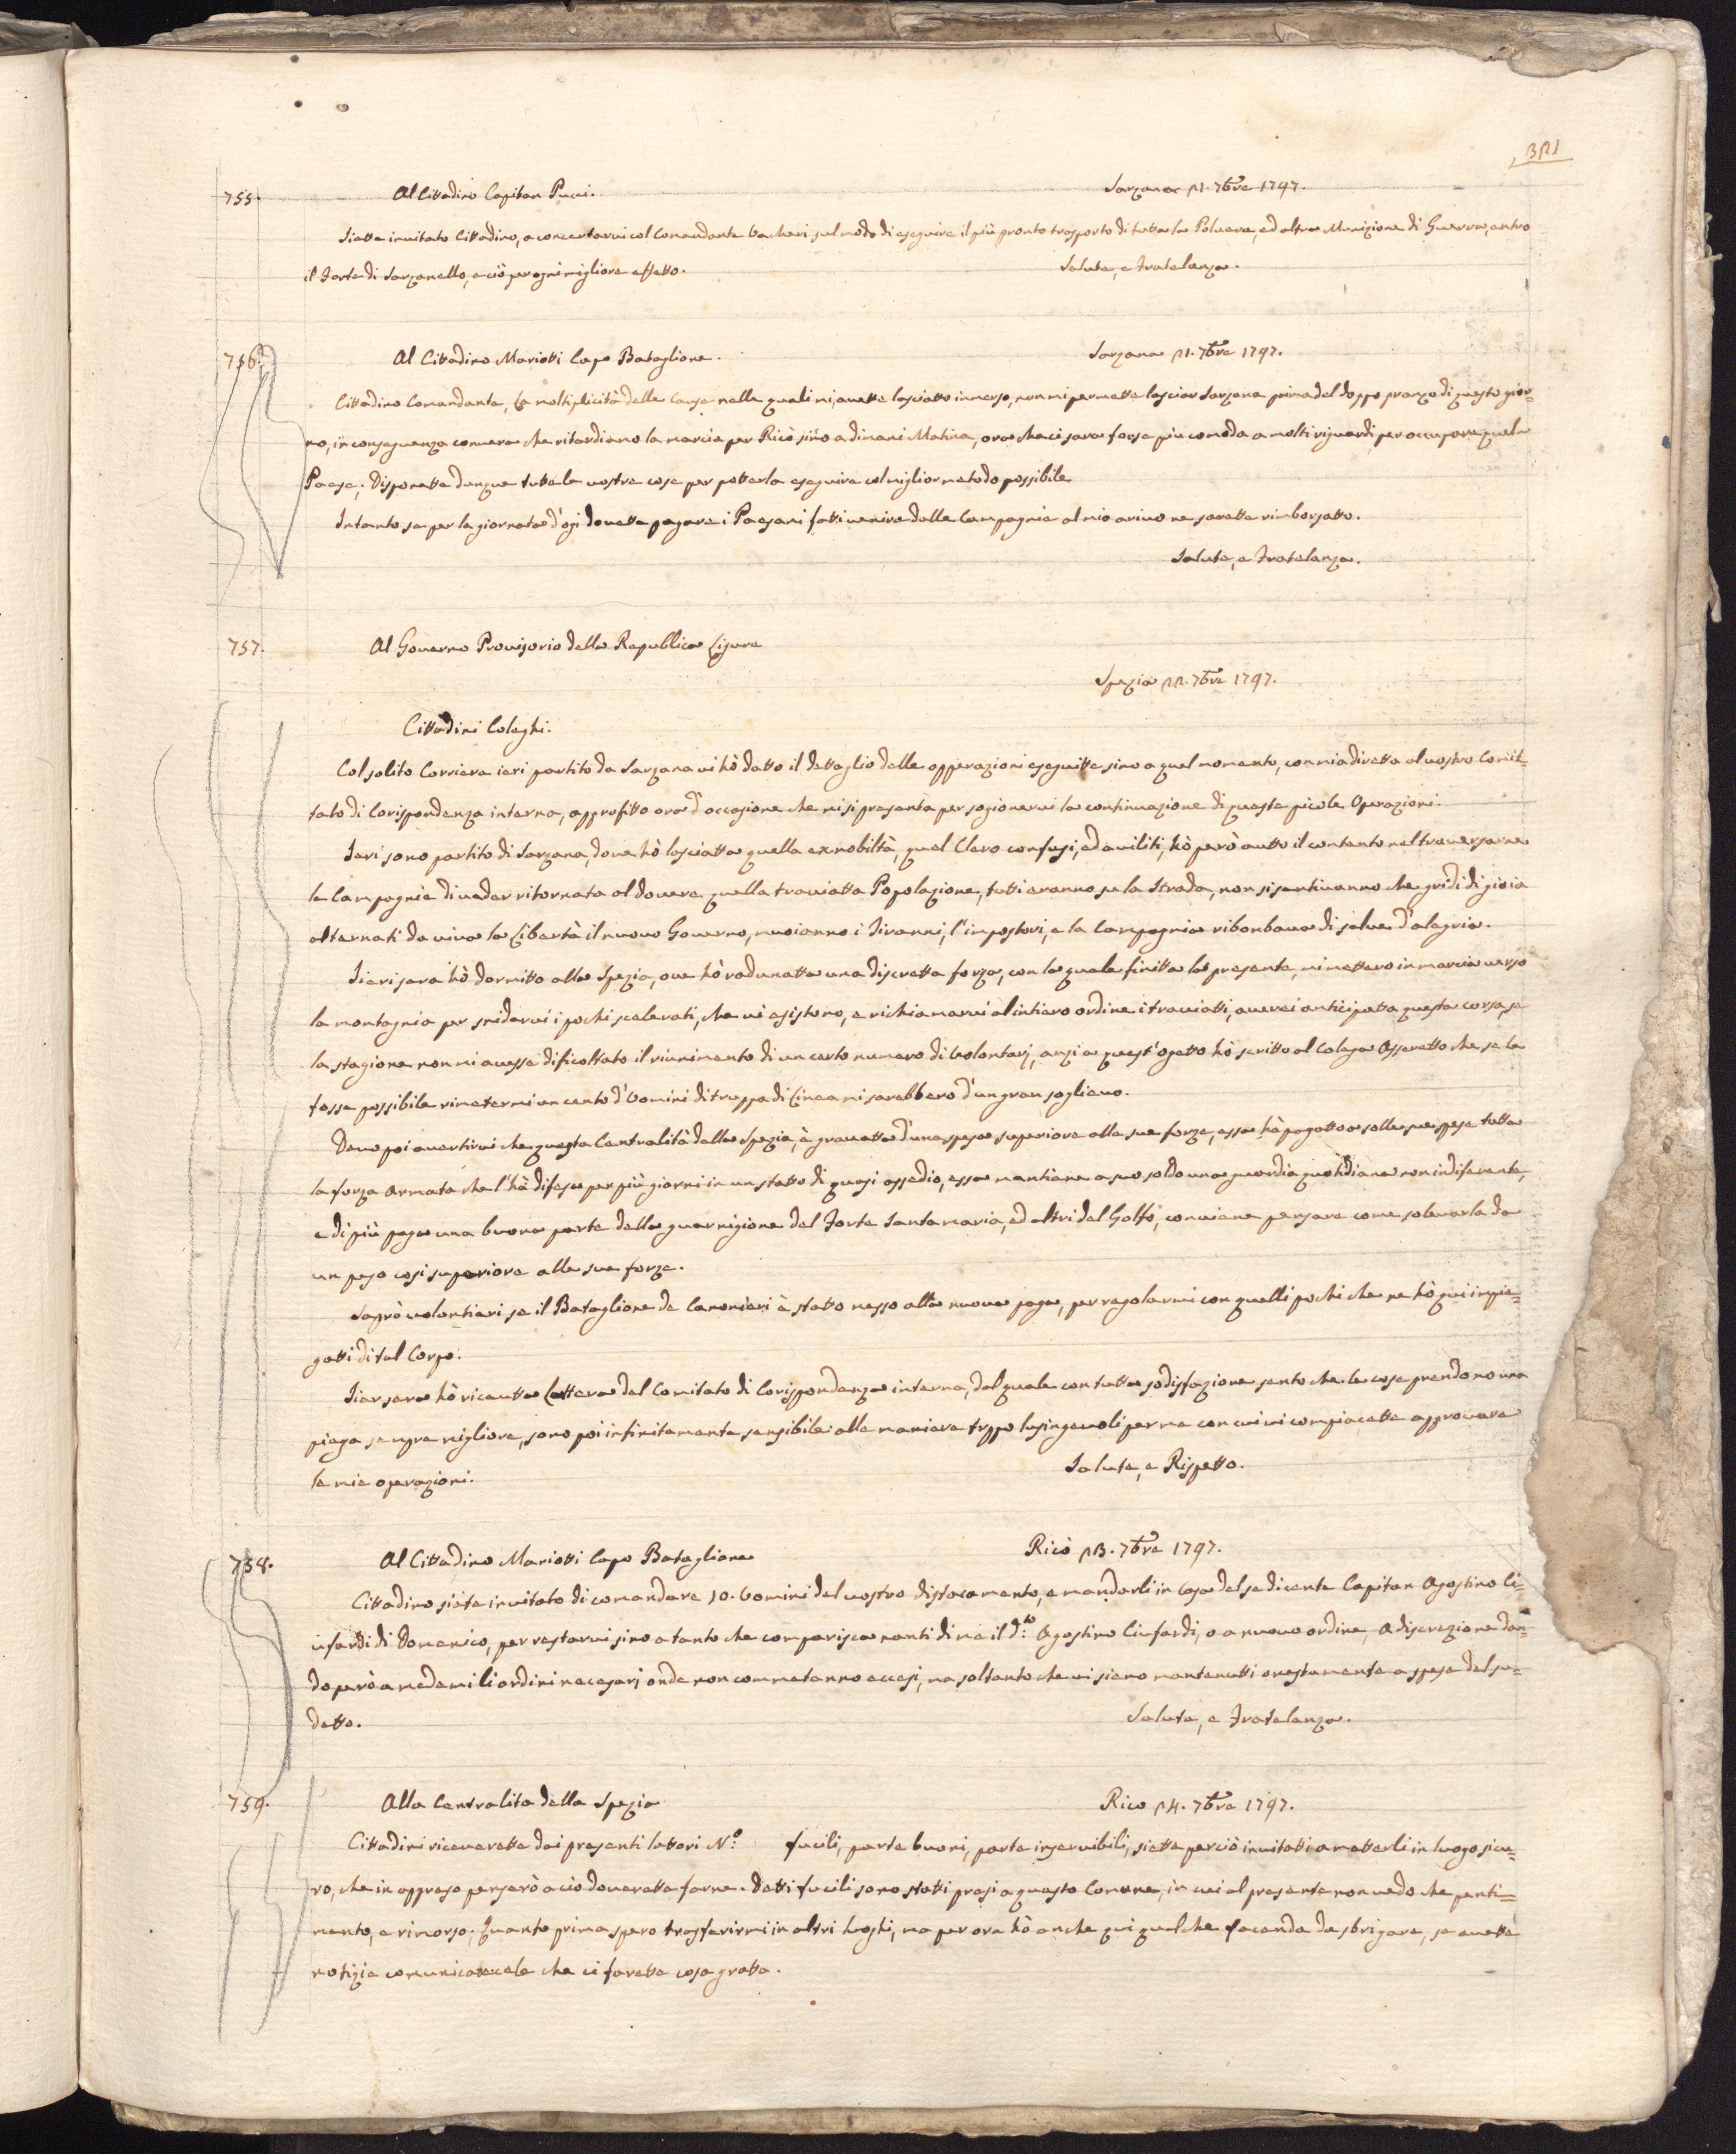 321
755. Al Cittadino Capitan Pucci. Sarzana 21. 7bre 1797.
Siette invitato Cittadino, a concertarvi col Comandante Vacheri sul modo di eseguire il più pronto trasporto di tutta la Polvere, ed altra Munizione di Guerra, entro
il Forte di Sarzanello, e ciò per ogni migliore effetto. Salute, e Fratelanza.
756. Al Cittadino Mariotti Capo Bataglione. Sarzana 21. 7bre 1797.
Cittadino Comandante, La moltiplicità delle Cause nelle quali mi avette lasciatto immerso, non mi permette lasciar Sarzana prima del doppo pranzo di questo gior=
no, in conseguenza converà che ritardiamo la marcia per Ricò sino a dimani Matina, ora che ci sarà forse più comoda a molti riguardi, per occupare quel
Paese; Disponette dunque tutte le vostre cose per potterla eseguire col miglior metodo possibile.
Intanto se per la giornata d'ogi dovette pagare i Paesani fatti venire dalle Campagnie al mio arivo ne sarette rimborsatto.
Salute, e Fratelanza.
757. Al Governo Provisorio della Republica Ligure
Spezia 22. 7bre 1797.
Cittadini Coleghi.
Col solito Corriere ieri partito da Sarzana vi hò datto il dettaglio delle opperazioni eseguitte sino a quel momento, con mia diretta al vostro Comit=
tato di Corispondenza interna, approfitto ora d'occasione che mi si presenta per sogionervi la continuazione di queste picole Operazioni.
Ieri sono partito di Sarzana, dove hò lasciatta quella exnobiltà, quel Clero confusi, ed aviliti, hò però autto il contento nel traversarne
le Campagnie di veder ritornata al dovere quella traviatta Popolazione, tutti eranno su la Strada, non si sentivanno che gridi di gioia
alternati da viva la Libertà il nuovo Governo, muoianno i Tiranni, l'impostori, e la Campagnia ribonbava di salve d'alegria.
Iieri sera hò dormitto alla Spezia, ove hò radunatta una discretta forza, con la quale finitta la presente, mi mettero in marcia verso
la montagnia per snidarvi i pochi scelerati, che vi esistono, e richiamarvi al intiero ordine i traviatti, averei anticipatta questa corsa, se
la stagione non mi avesse dificoltato il riunimento di un certo numero di Volontarj, anzi a quest'ogetto hò scritto al Colega Assaretto che se le
fosse possibile rimetermi un cento d'Uomini di truppa di Linea mi sarebbero d'un gran soglievo.
Devo poi avertirvi che questa Centralità della Spezia, è gravatta d'una spesa superiore alle sue forze, essa hà pagatto a solle sue spese tutta
la forza Armata che l'hà difesa per più giorni in un statto di quasi assedio, essa mantiene a suo soldo una guardia quotidiana non indiferente,
e di più paga una buona parte della guarnigione del Forte Santa maria, ed altri del Golfo, conviene pensare come solevarla da
un peso così superiore alle sue forze.
Saprò volontieri se il Bataglione de Canonieri è statto messo alla nuova paga, per regolarmi con quelli pochi che ne hò qui impie=
gatti di tal Corpo.
Iier sera hò riceutta Lettera del Comitato di Corispondenza interna, dal quale con tutta sodisfazione sento che le cose prendono una
piega sempre migliore, sono poi infinitamente sensibile alle maniere troppo lusingevoli per me con cui vi compiacette approvare
le mie operazioni. Salute, e Rispetto.
758. Al Cittadino Mariotti Capo Bataglione Ricò 23. 7bre 1797.
Cittadino siete invitato di comandare 10. Uomini del vostro distacamento, e mandarli in Casa del se dicente Capitan Agostino Ci=
ufardi di Domenico, per restarvi sino a tanto che comparisca nanti di me il d.to Agostino Ciufardi, o a nuovo ordine, a discrezione dan=
do però a medemi li ordini necesarj onde non commetanno eccesi, ma soltanto che vi siano mantenutti onestamente a spese del su=
detto. Salute, e Fratelanza.
759. Alla Centralita della Spezia Rico 24. 7bre 1797.
Cittadini riceverette dai presenti lattori N.o fucili, parte buoni, parte inservibili, siette perciò invitatti a metterli in luogo sicu=
ro, che in appreso penserò a ciò doverette farne. Detti fucili sono statti presi a questo Comune, in cui al presente non vedo che penti=
mento, e rimorso; Quanto prima spero trasferirmi in altri luoghi, ma per ora hò anche qui qualche facenda da sbrigare, se avette
notizie comunicatecele che ci farette cosa gratta.